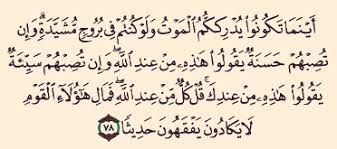 أَيْنَمَا تَكُونُوا۟ يُدْرِككُّمُ ٱلْمَوْتُ وَلَوْ كُنتُمْ فِى بُرُوجٍ مُّشَيَّدَةٍ ۗ وَإِن
تُصِبْهُمْ حَسَنَةٌ يَقُولُوا۟ هَٰذِهِۦ مِنْ عِندِ ٱللَّهِ ۖ وَإِن تُصِبْهُمْ سَيِّئَةٌ
يَقُولُوا۟ هَٰذِهِۦ مِنْ عِندِكَ ۚ قُلْ كُلٌّ مِّنْ عِندِ ٱللَّهِ ۖ فَمَالِ هَٰٓؤُلَآءِ ٱلْقَوْمِ
لَا يَكَادُونَ يَفْقَهُونَ حَدِيثًا ٧٨